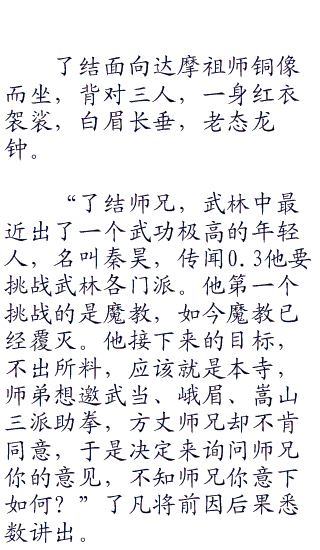 了结面向达摩祖师铜像
而坐，背对三人，一身红衣
袈裟，白眉长垂，老态龙
钟。
“了结师兄，武林中最
近出了一个武功极高的年轻
人，名叫秦昊，传闻0.3他要
挑战武林各门派。他第一个
挑战的是魔教，如今魔教已
经覆灭。他接下来的目标，
不出所料，应该就是本寺，
师弟想邀武当、峨眉、嵩山
三派助拳，方丈师兄却不肯
同意，于是决定来询问师兄
你的意见，不知师兄你意下
如何？”了凡将前因后果悉
数讲出。